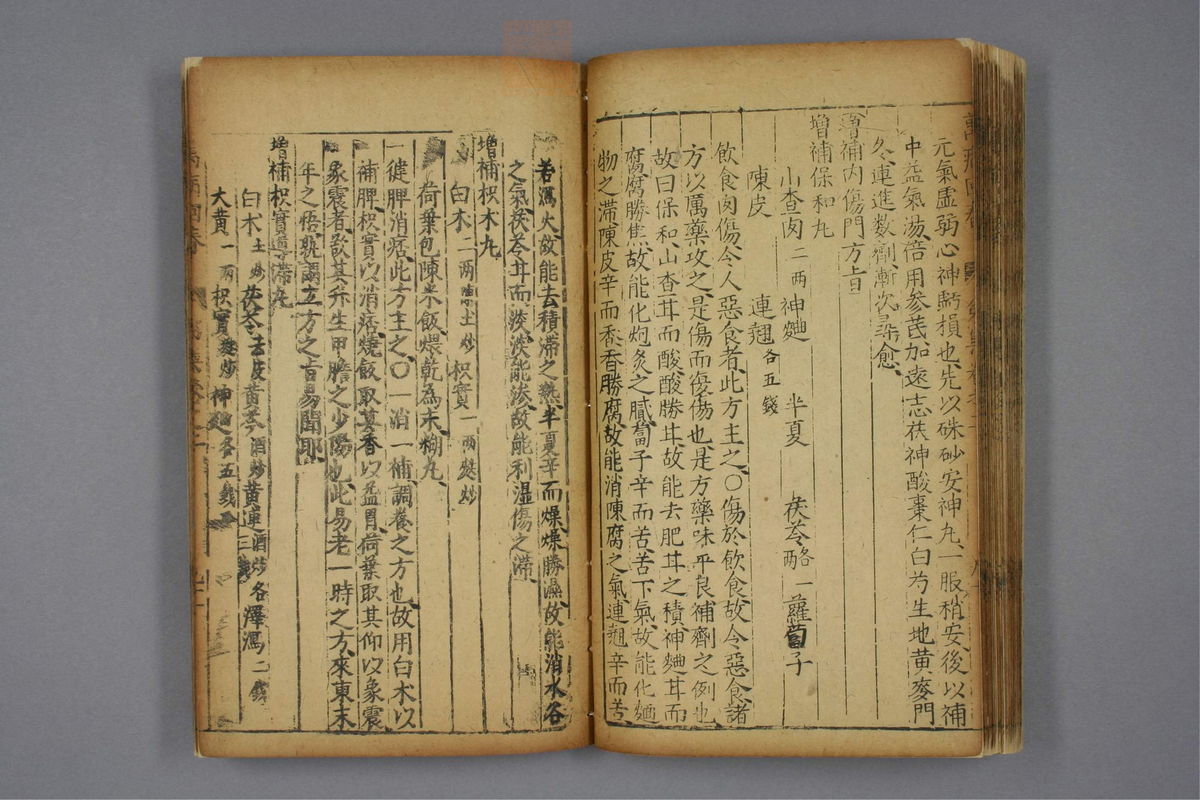 元氣虛弱心神虧損也先以硃砂安神丸一服稍安後以補
中益氣湯倍用參芪加遠志茯神酸棗仁白芍生地黃麥門
久連進數劑漸次尋愈
增補內傷門方旨
增補保和丸
山查肉二兩 神麯 半夏 茯苓各一兩 蘿蔔子
陳皮 連翹各五錢
飲食內傷令人惡食者此方主之〇傷於飲食故令惡食諸
方以厲藥攻之是傷而復傷也是方藥味平良補劑之例也
故曰保和山查甘而酸酸勝甘故能去肥甘之積神麯甘而
腐腐勝焦故能化炮炙之膩蔔子辛而苦苦下氣故能化麵
物之滯陳皮辛而香香勝腐故能消陳腐之氣連翹辛而苦
苦瀉火故能去積滯之熱半夏辛而燥燥勝濕故能消水谷
之氣茯苓甘而淡淡能滲故能利濕傷之滯
增補枳朮丸
白朮二兩陳土炒 枳實一兩麩炒
荷葉包陳米飯煨乾為末糊丸
一健脾消痞此方主之〇一消一補調養之方也故用白朮以
補脾枳實以消痞燒飯取其香以益胃荷葉取其仰以象震
象震者欲其升生甲膽之少陽也此易老一時之方來東末
年之悟孰謂立方之旨易聞耶
增補枳實導滯丸
白朮土炒 茯苓去皮 黃芩酒炒 黃連酒炒各三錢 澤瀉二錢
大黃一兩 枳實麩炒 神麯各五錢